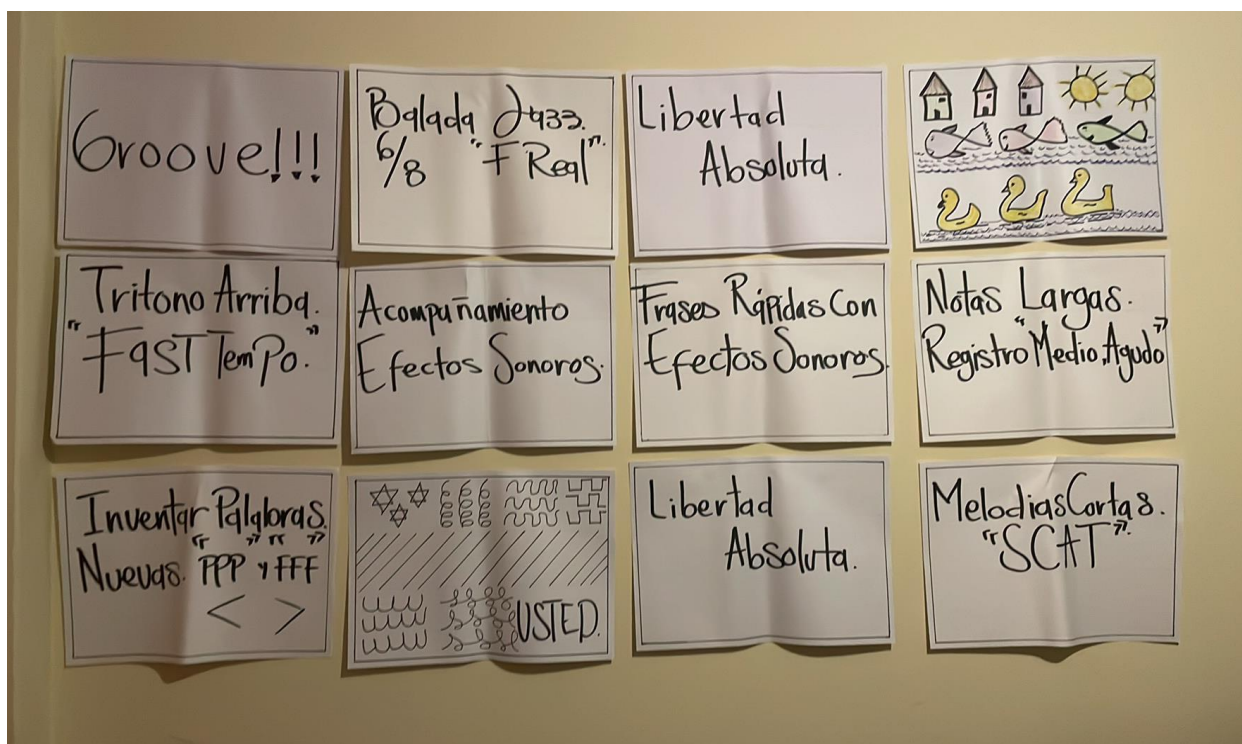 Groove!!!
Balada Jazz.
6/8 "F Real".
Libertad
Absoluta.
Tritono Arriba.
"Fast Tempo."
Acompañamiento
Efectos Sonoros.
Frases Rápidas Con
Efectos Sonoros.
Notas Largas.
Registro "Medio, Agudo"
Inventar Palabras.
Nuevas. "PPP" y "FFF"
< >
USTED.
Libertad
Absoluta.
Melodias Cortas.
"SCAT".